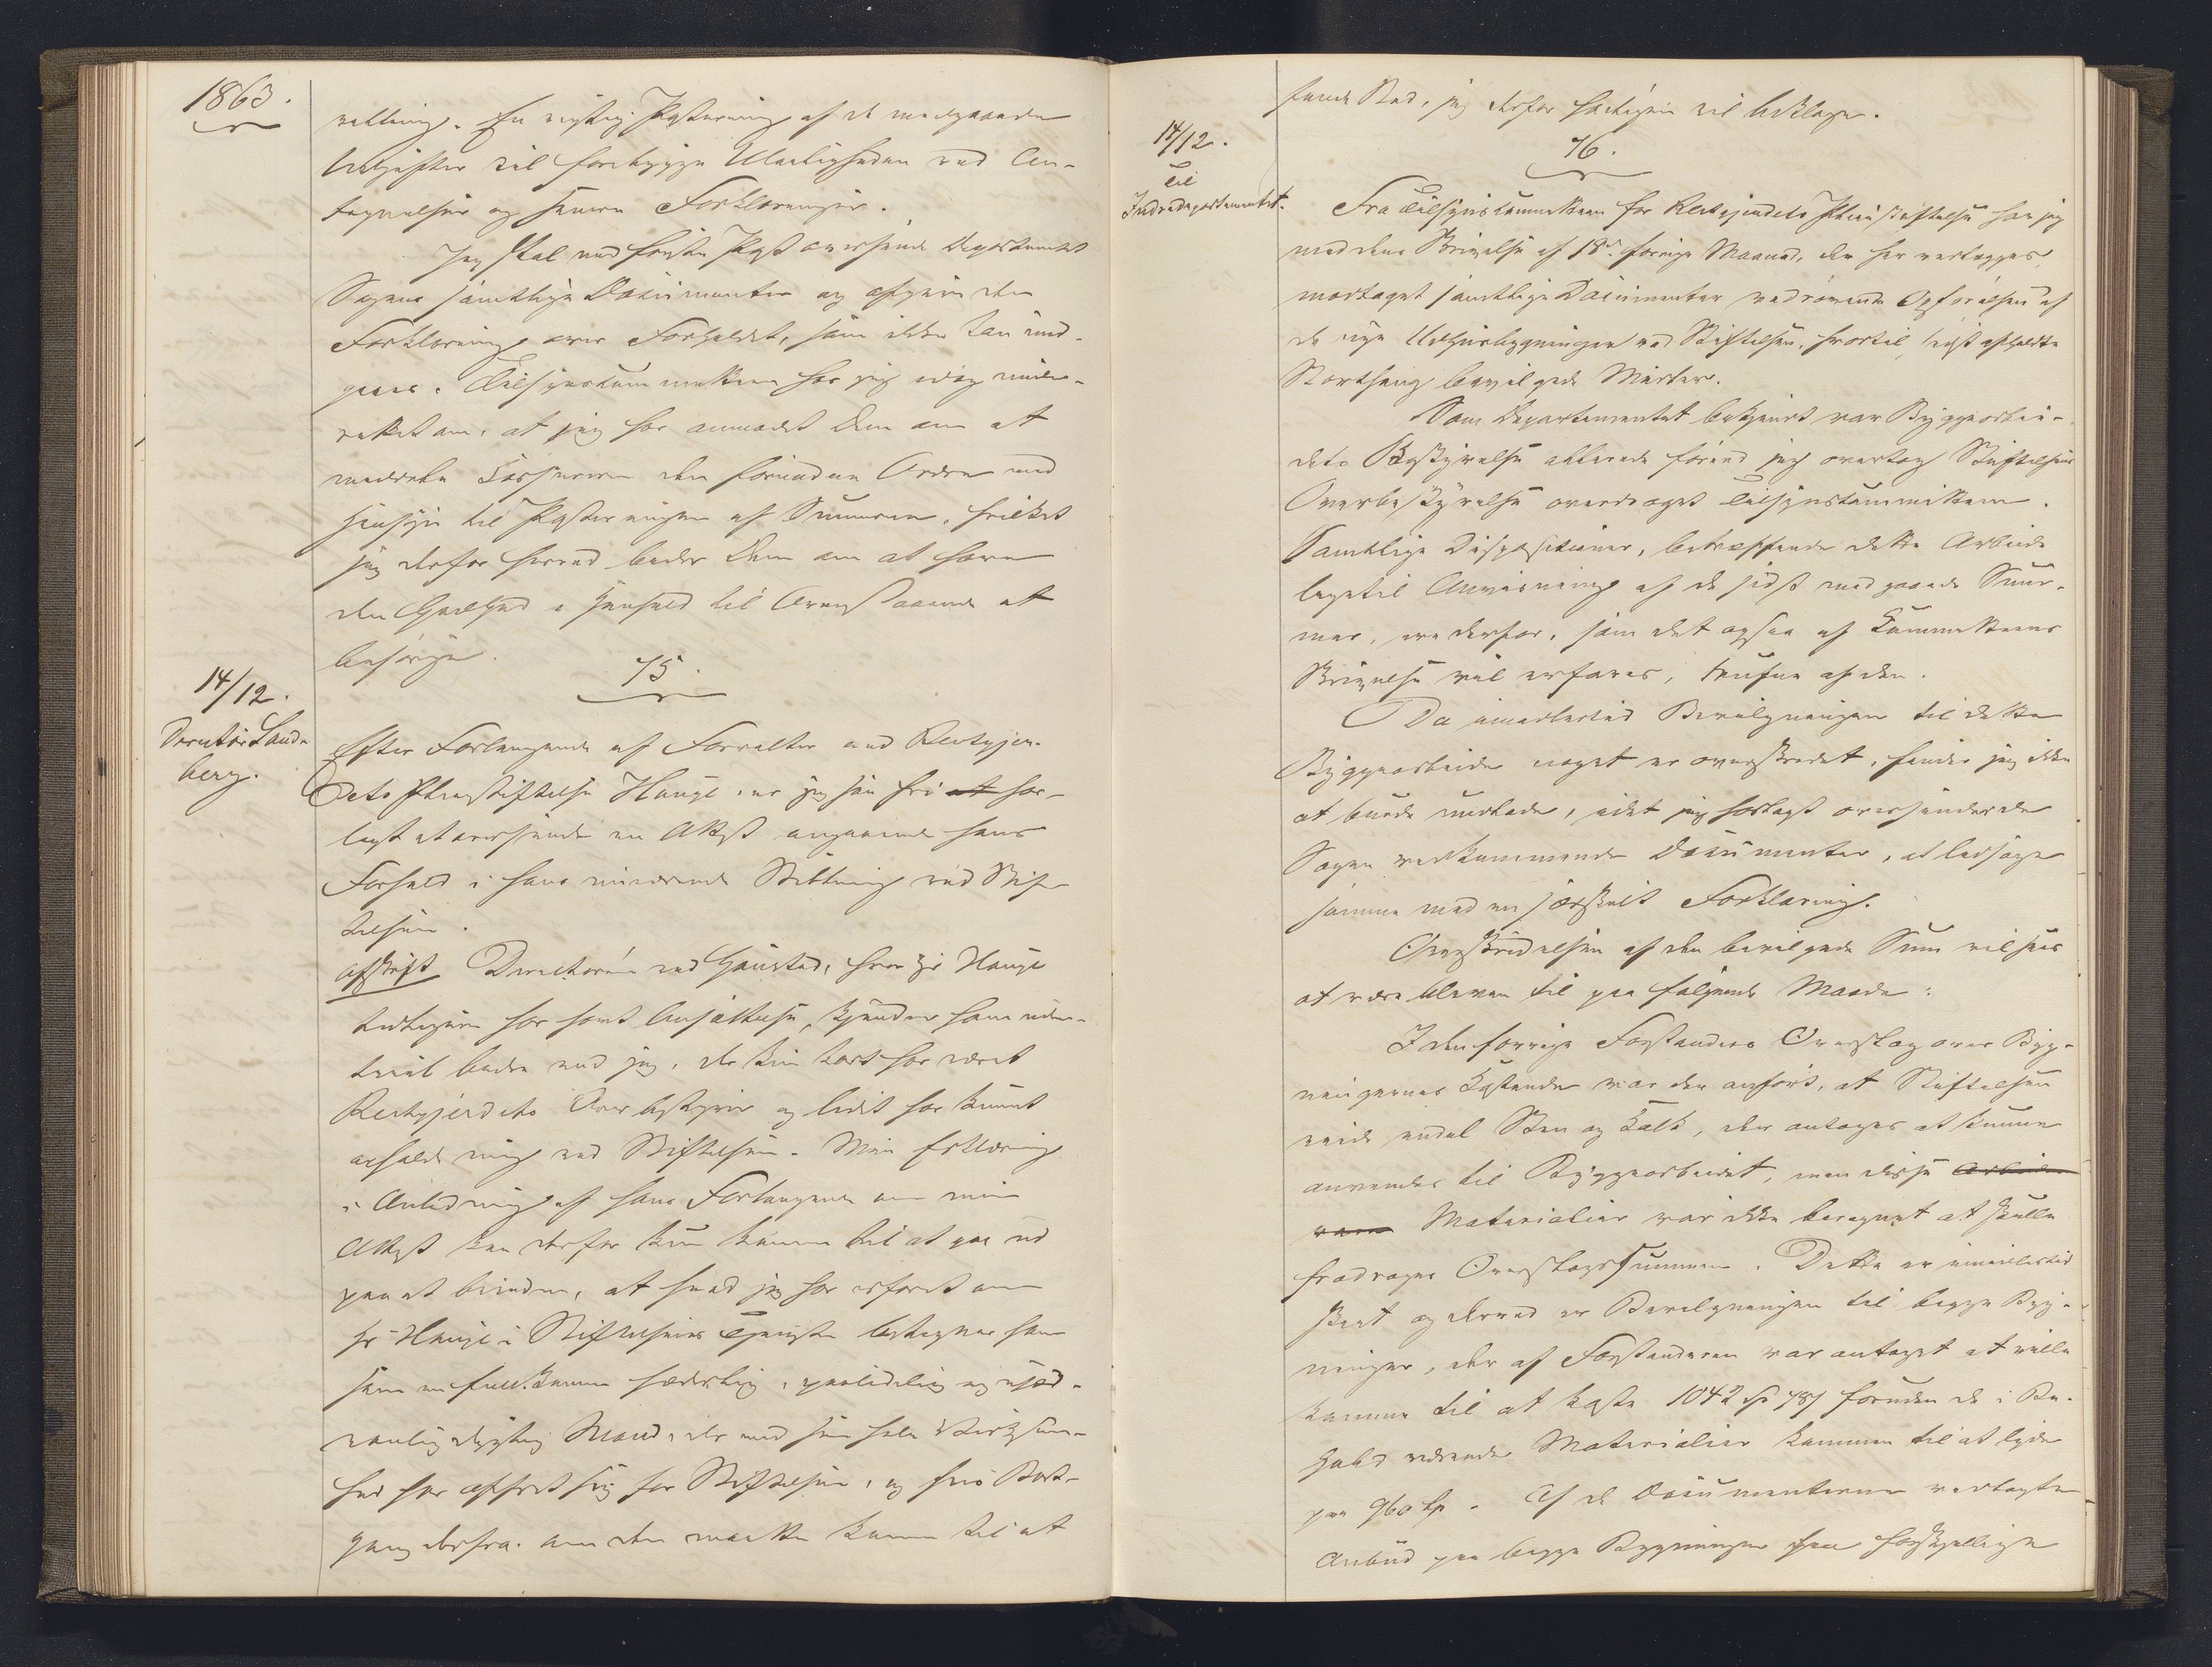 1863.
retning. En rigtig Postering af de medgaaede
Udgifter vil forebygge Uleiligheden ved An-
tegnelser og senere Forklaringer.
Jeg skal med første Post oversende Departementet
Sagens samtlige Documenter og afgive den
Forklaring over Forholdet, som ikke kan und-
gaaes. Tilsynscommitteen har jeg idag under-
rettet om, at jeg har anmodet Dem om at
meddele Kassereren den fornødne Ordre med
Hensyn til Posteringen af Summen, hvilket
jeg derfor herved beder Dem om at have
den Godhed i Henhold til Ovenstaaende at
besørge.
14/12.
Directør Sand-
berg.
75.
Efter Forlangende af Forvalter ved Reitgjer-
dets Pleiestiftelse Hauge, er jeg saa fri at her-
lagt at oversende en Attest angaaende hans
Forhold i hans nuværende Stilling ved Stif-
telsen.
Afskrift Directøren ved Gaustad, hvor Hr Hauge
tidligere har havt Ansættelse, kjender ham uden-
tvivl bedre end jeg, der kun kort har været
Reitgjerdets Overbestyrer og lidet har kunnet
opholde mig ved Stiftelsen. Min Erklæring
i Anledning af hans Forlangende om min
Attest kan derfor kun komme til at gaa ud
paa at bevidne, at hvad jeg har erfaret om
Hr Hauge i Stiftelsens Tjeneste betegner ham
som en fuldkommen hæderlig, paalidelig og usæd-
vanlig dygtig Mand, der med sin hele Virksom-
hed har opofret sig for Stiftelsen, og hvis Bort-
gang derfra, om den maatte komme til at
finde Sted, jeg derfor høiligen vil beklage.
14/12.
Til
Indredepartementet.
76.
Fra Tilsynscommitteen for Reitgjerdets Pleiestiftelse har jeg
med dens Skrivelse af 18de forrige Maaned, der her vedlægges,
modtaget samtlige Documenter vedrørende Opførelsen af
de nye Udhusbygninger ved Stiftelsen, hvortil sidst afholdte
Storthing bevilgede Midler.
Som Departementet bekjendt var Byggearbei-
dets Bestyrelse allerede førend jeg overtog Stiftelsens
Overbestyrelse overdraget Tilsynscommitteen.
Samtlige Dispositioner, betræffende dette Arbeide
lige til Anvisning af de sidst medgaaede Sum-
mer, ere derfor, som det ogsaa af Committeens
Skrivelse vil erfares, trufne af den.
Da imidlertid Bevilgningen til dette
Byggearbeide noget er overskredet, finder jeg ikke
at burde undlade, idet jeg herlagt oversender de
Sagen vedkommende Documenter, at ledsage
samme med en særskilt Forklaring.
Overskridelsen af den bevilgede Sum vil sees
at være bleven til paa følgende Maade:
I den forrige Forstanders Overslag over Byg-
ningernes Kostende var den anført, at Stiftelsen
eiede endel Sten og Kalk, der antoges at kunne
anvendes til Byggearbeidet, men disse Arbeide
vare Materialier var ikke beregnet at skulle
fradrages Overslagssummen. Dette er imidlertid
skeet og derved er Bevilgningen til begge Byg-
ninger, der af Forstanderen var antaget at ville
komme til at koste 1042 Sp 78 foruden de i Be-
hold værende Materialier kommen til at lyde
paa 960 Sp. Af de Documenterne vedlagte
Anbud paa begge Bygninger fra forskjellige